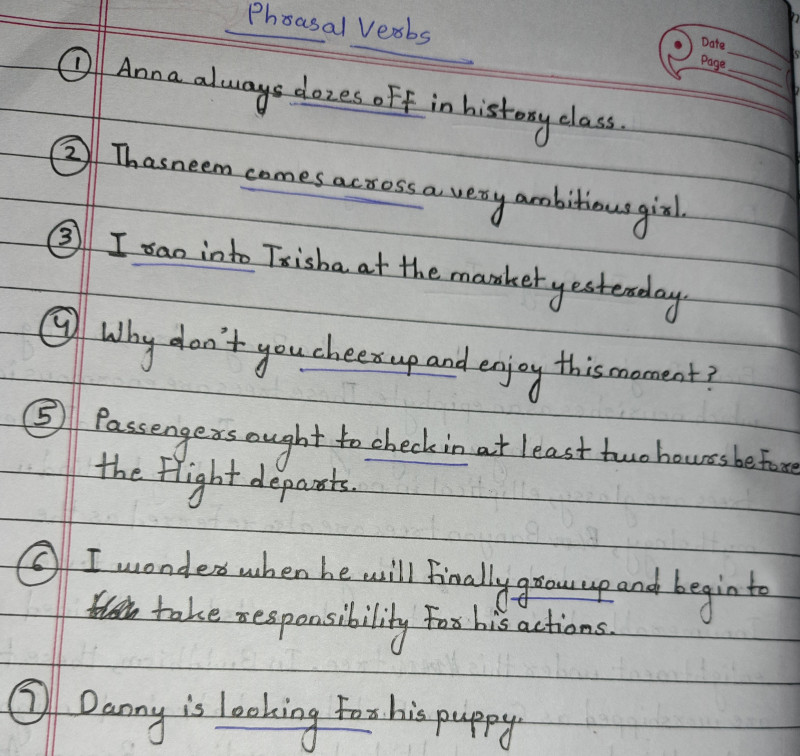 Phrasal Verbs
Date
Page
① Anna always dozes off in history class.
② Thasneem comes across a very ambitious girl.
③ I ran into Trisha at the market yesterday.
④ Why don't you cheer up and enjoy this moment?
⑤ Passengers ought to check in at least two hours before
the flight departs.
⑥ I wonder when he will finally grow up and begin to
take responsibility for his actions.
⑦ Danny is looking for his puppy.